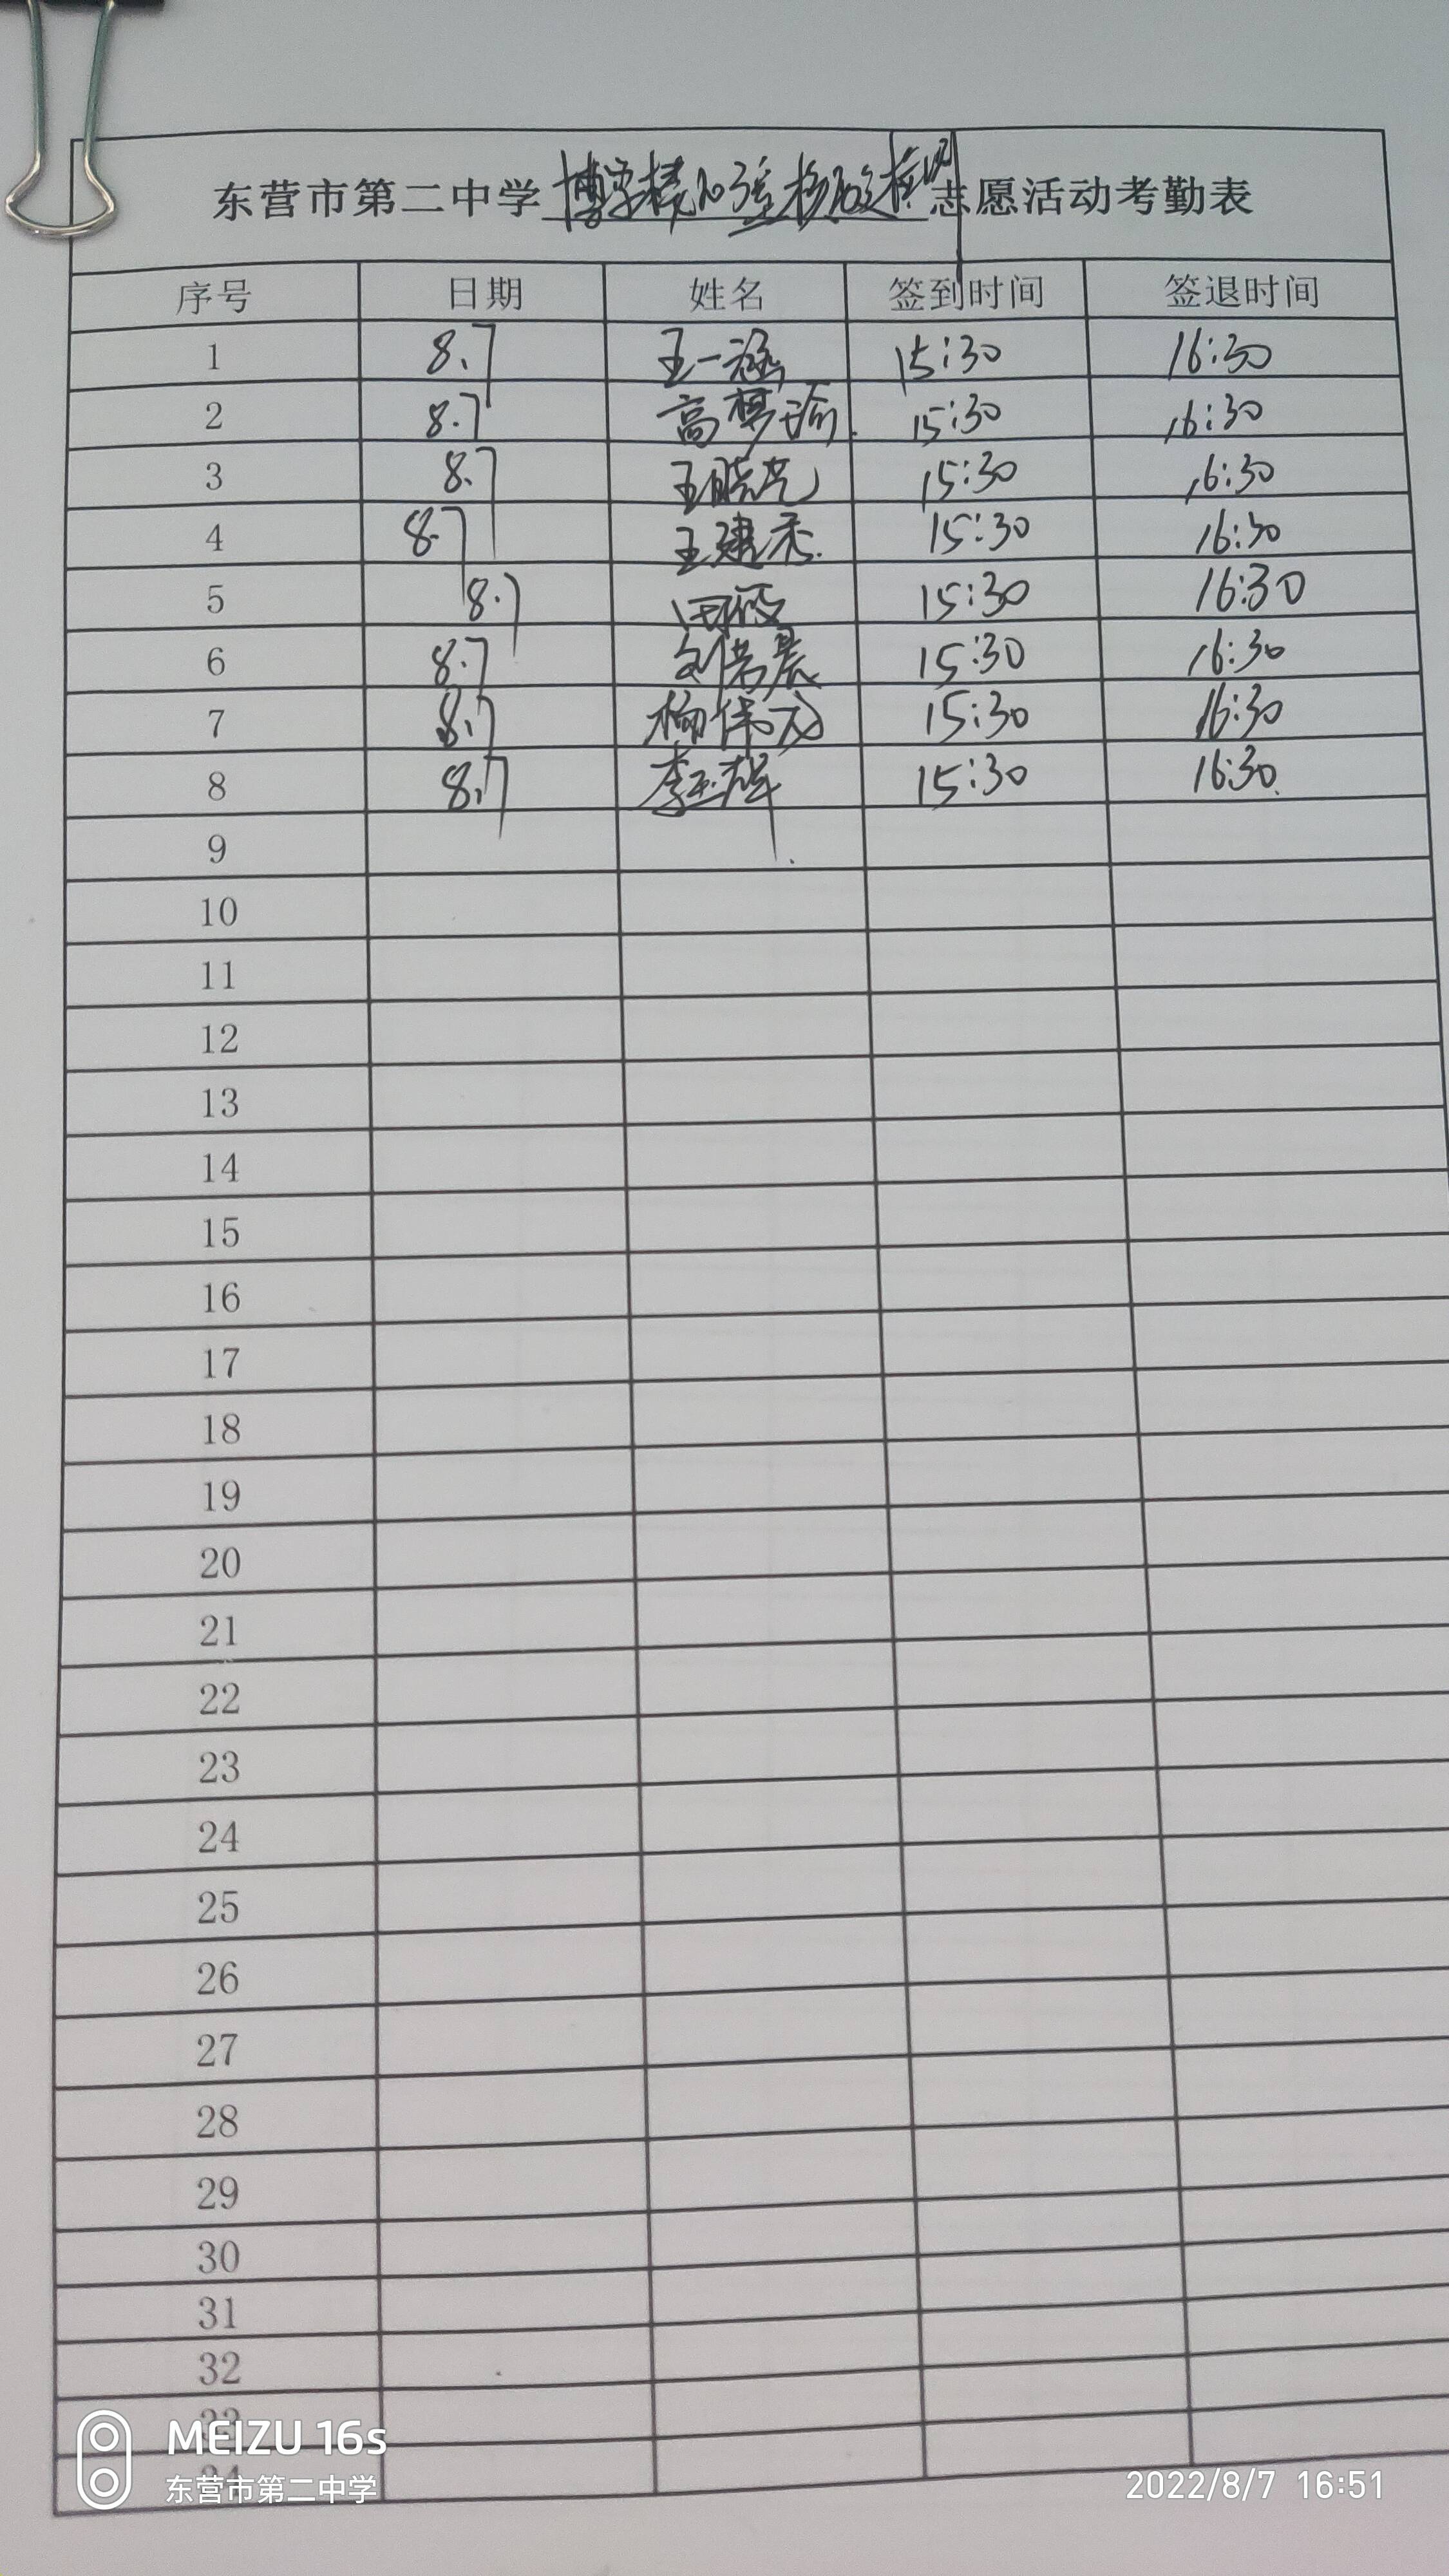 东营市第二中学博学楼的核酸检测志愿活动考勤表
序号 日期 姓名 签到时间 签退时间
1 8.7 王一涵 15:30 16:30
2 8.7 高梦瑜 15:30 16:30
3 8.7 王晓光 15:30 16:30
4 8.7 王建 15:30 16:30
5 8.7 田 15:30 16:30
6 8.7 刘若晨 15:30 16:30
7 8.7 杨伟 15:30 16:30
8 8.7 李玉辉 15:30 16:30
9
10
11
12
13
14
15
16
17
18
19
20
21
22
23
24
25
26
27
28
29
30
31
32
33
34
MEIZU 16s
东营市第二中学
2022/8/7 16:51